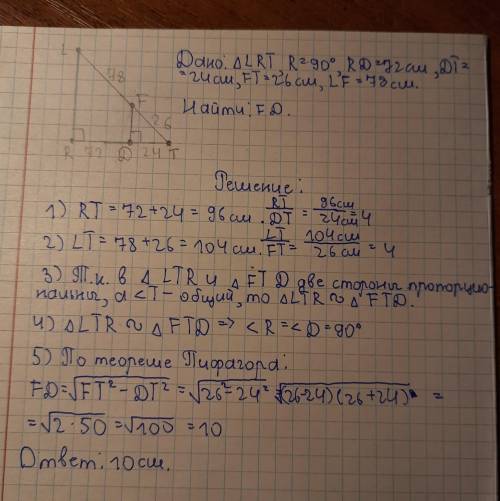 L
78
F
26
R 72 D 24 T
Дано: △LRT, R=90°, RD=72см, DT=
=24см, FT=26см, LF=78см.
Найти: FD.
Решение:
1) RT = 72+24 = 96см. RT/DT = 96см/24см = 4
2) LT = 78+26 = 104см. LT/FT = 104см/26см = 4
3) Т.к. в △LTR и △FTD две стороны пропорцио-
нальны, а <T - общий, то △LTR ~ △FTD.
4) △LTR ~ △FTD => <R = <D = 90°
5) По теореме Пифагора:
FD=√FT²-DT² = √26²-24² = √(26-24)(26+24) =
= √2·50 = √100 = 10
Ответ: 10см.